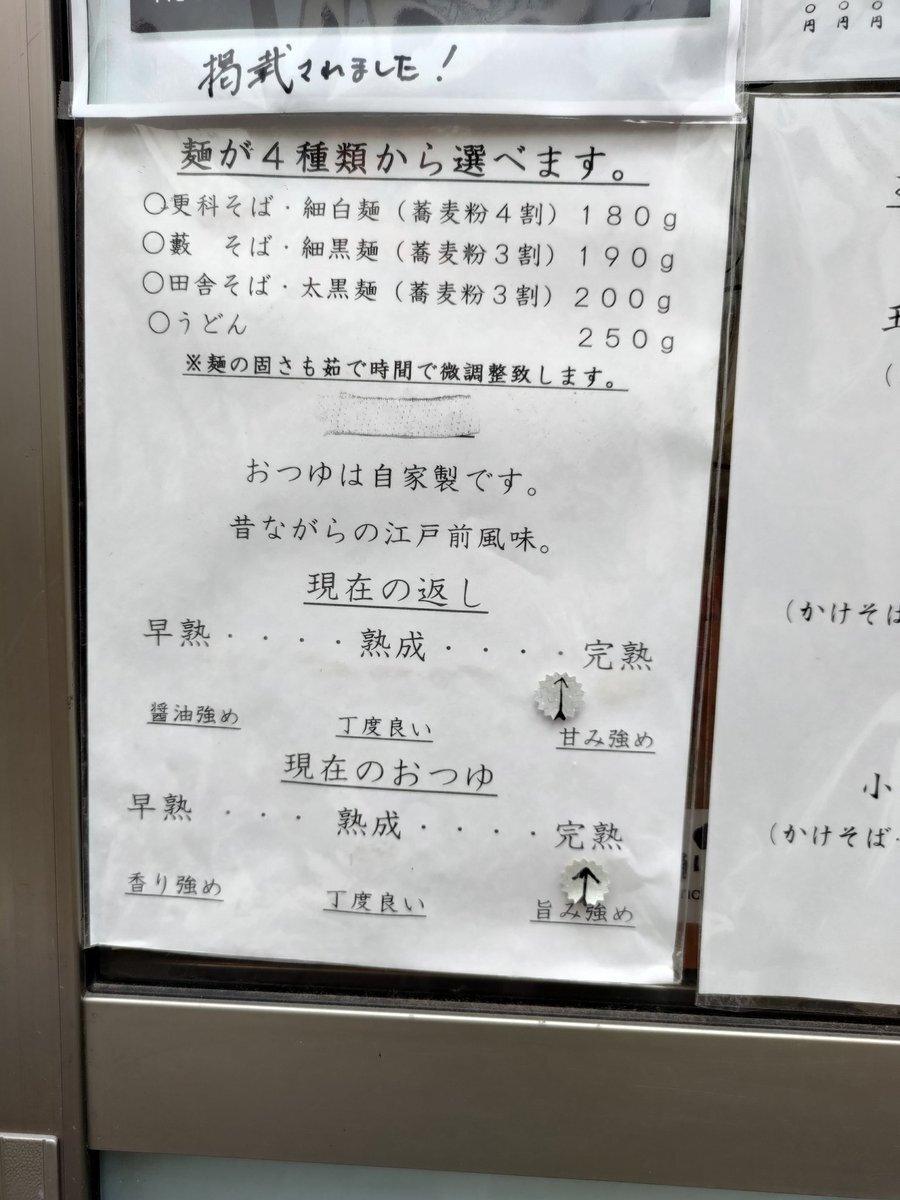 掲載されました!
麺が4種類から選べます。
○更科そば・細白麺(蕎麦粉4割)180g
○藪 そば・細黒麺(蕎麦粉3割)190g
○田舎そば・太黒麺(蕎麦粉3割)200g
○うどん 250g
※麺の固さも茹で時間で微調整致します。
おつゆは自家製です。
昔ながらの江戸前風味。
現在の返し
早熟・・・・熟成・・・・完熟
↑
醤油強め 丁度良い 甘み強め
現在のおつゆ
早熟・・・熟成・・・・完熟
↑
香り強め 丁度良い 旨み強め
0円 0円 0円
(かけそば
小
(かけそば・